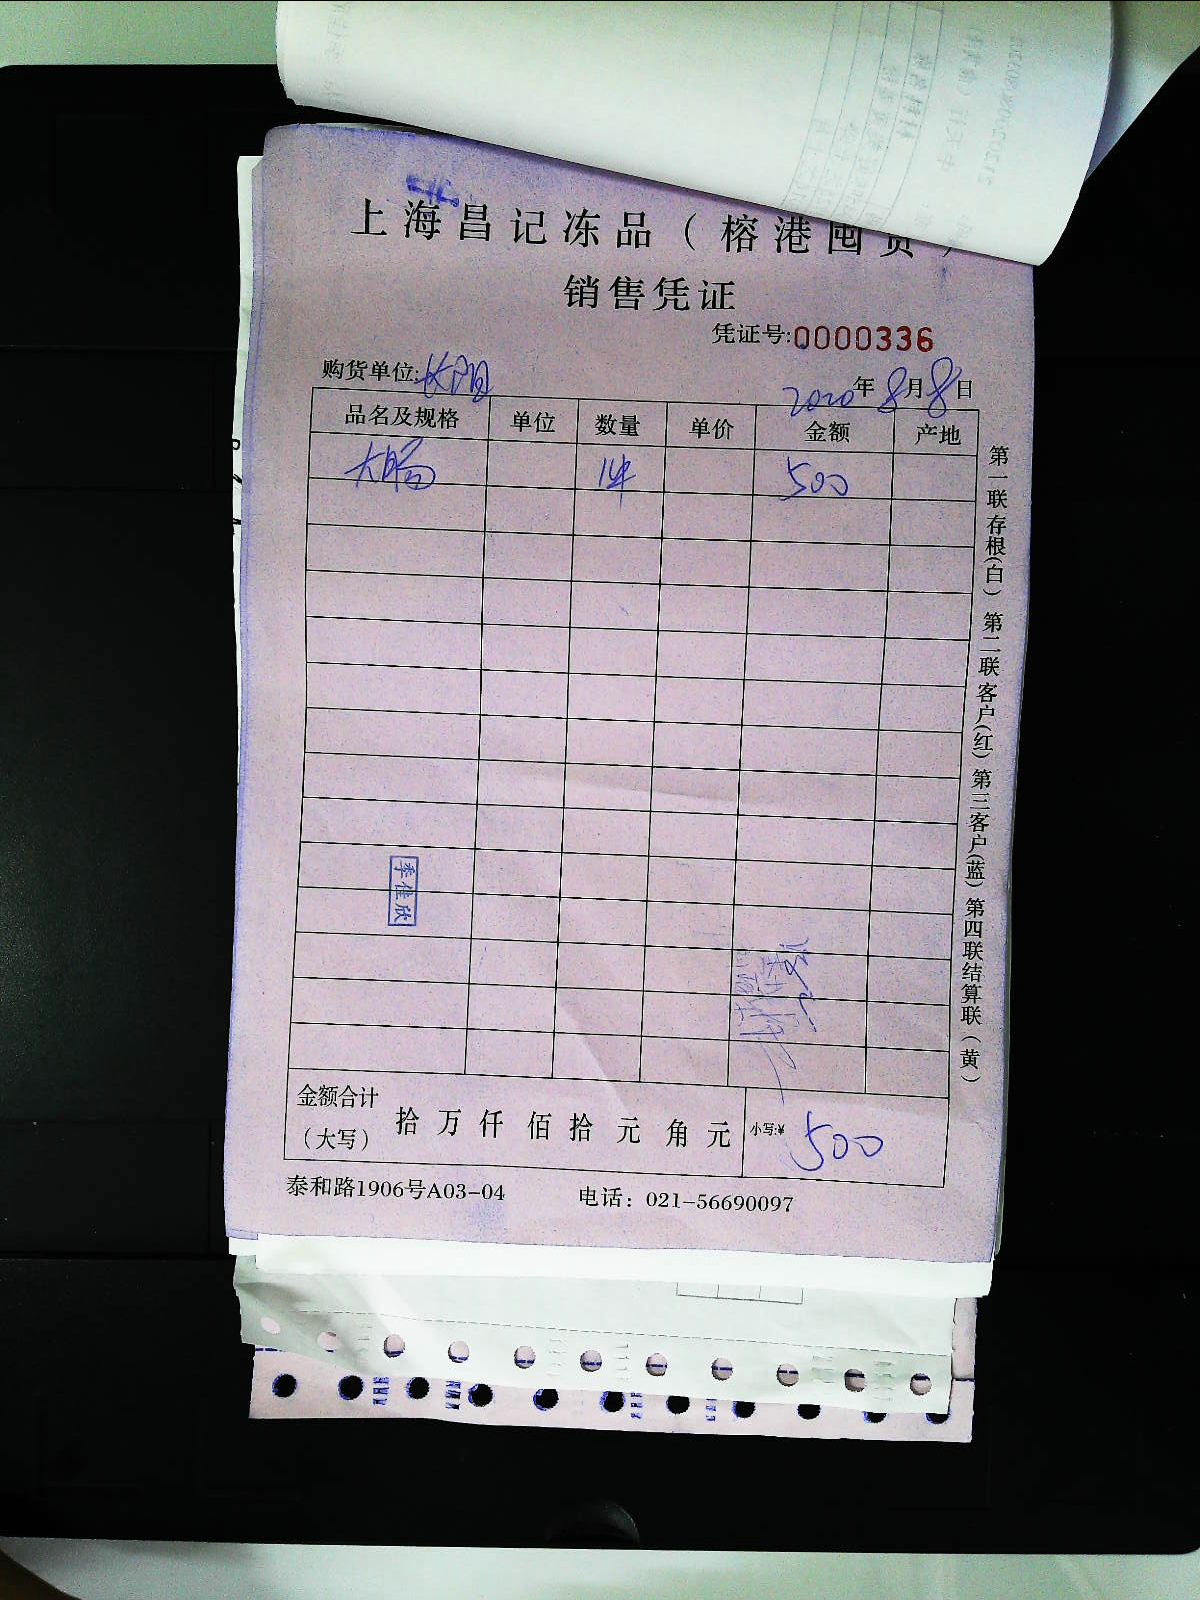 上海昌记冻品（榕港囤货）
销售凭证
凭证号:0000336
购货单位:长阳
2020年8月8日
品名及规格 单位 数量 单价 金额 产地
大肠 1件 500
季佳欣
金额合计（大写） 拾 万 仟 佰 拾 元 角 元 小写:¥ 500
泰和路1906号A03-04 电话：021-56690097
第一联存根(白) 第二联客户(红) 第三客户(蓝) 第四联结算联（黄）